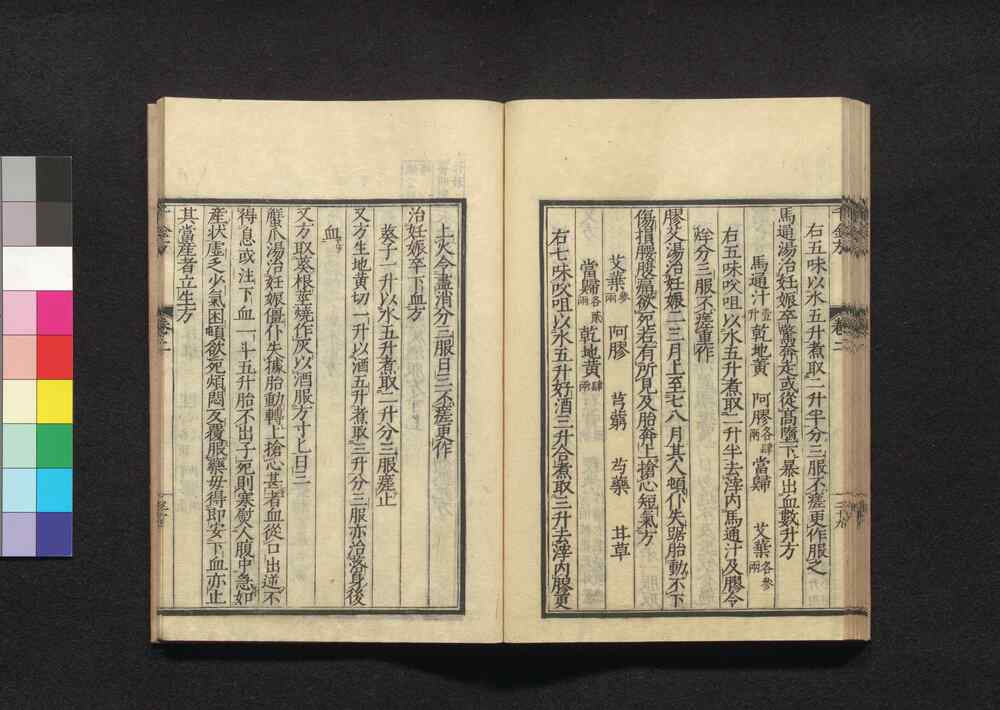 右五味以水五升煮取二升半分三服不瘥更作服之
馬通湯治妊娠卒驚奔走或從高墮下暴出血數升方
馬通汁壹升 乾地黃 阿膠各肆兩 當歸 艾葉各參兩
右五味㕮咀以水五升煮取二升半去滓內馬通汁及膠令
烊分三服不瘥重作
膠艾湯治妊娠二三月上至七八月其人頓仆失踞胎動不下
傷損腰腹痛欲死若有所見及胎奔上搶心短氣方
艾葉參兩 阿膠 芎藭 芍藥 甘草
當歸各貳兩 乾地黃肆兩
右七味㕮咀以水五升好酒三升合煮取三升去滓內膠更
上火令盡消分三服日三不瘥更作
治妊娠卒下血方
葵子一升以水五升煮取二升分三服瘥止
又方生地黃切一升以酒五升煮取三升分三服亦治落身後
血
又方取葵根莖燒作灰以酒服方寸匕日三
蟹爪湯治妊娠僵仆失據胎動轉上搶心甚者血從口出逆不
得息或注下血一斗五升胎不出子死則寒熨人腹中急如
產狀虛乏少氣困頓欲死煩悶反覆服藥母得即安下血亦止
其當產者立生方
千金方 卷二 二十九